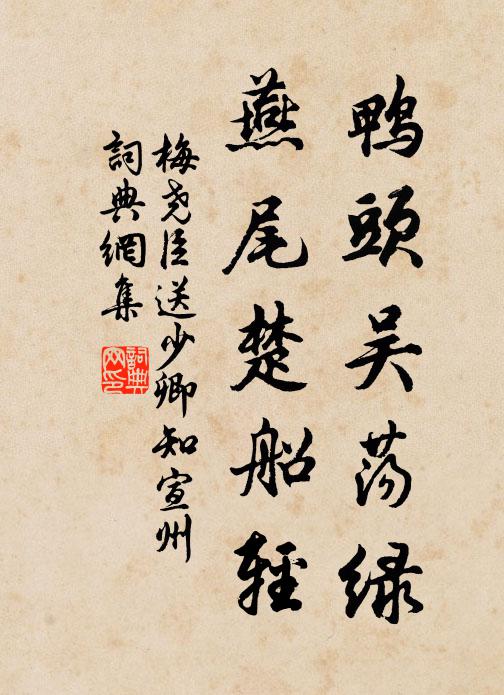 鸭頭吴荡绿
燕尾楚船輕
梅尧臣送少卿知宣州
詞典網集
詞典
网印